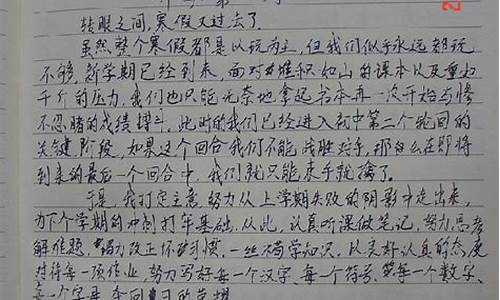 转眼之间，寒假又过去了。
虽然整个寒假都是以玩为主，但我们似乎永远都玩
不够。新学期已经到来，面对堆积如山的课本以及重如
千斤的压力，我们也只能无奈地拿起书本再一次开始与惨
不忍睹的成绩搏斗，此时的我们已经进入初中第二个轮回的
关键阶段，如果这个回合我们不能战胜对手，那么在即将
到来的最后一个回合中，我们就只能束手就擒了。
于是，我打定主意努力从上学期失败的阴影中走出来，
为下个学期的冲刺打牢基础，从此，认真听课做笔记，努力思考
解难题，努力改正坏习惯，一丝不苟学知识。以良好认真的态度
对待每一项作业，努力写好每一个汉字、每一个符号、每一个数字、